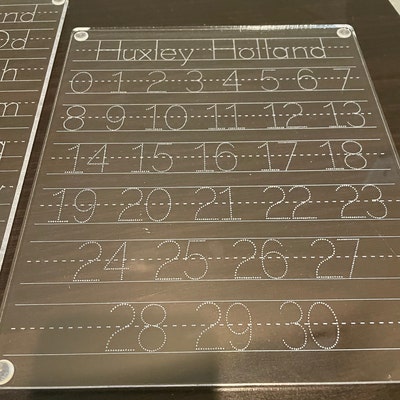 Huxley Holland
0 1 2 3 4 5 6 7
8 9 10 11 12 13
14 15 16 17 18
19 20 21 22 23
24 25 26 27
28 29 30
nd
d
h
m